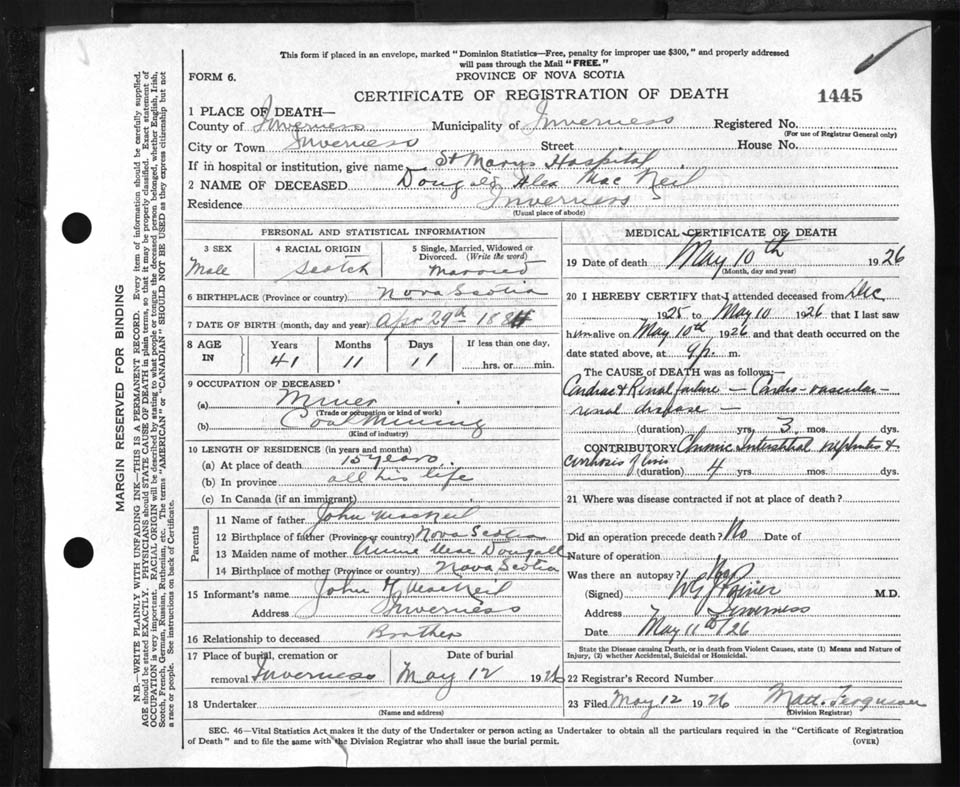 This form if placed in an envelope, marked "Dominion Statistics—Free, penalty for improper use $300," and properly addressed
will pass through the Mail "FREE."
FORM 6.
PROVINCE OF NOVA SCOTIA
CERTIFICATE OF REGISTRATION OF DEATH
1445
1 PLACE OF DEATH—
County of Inverness Municipality of Inverness Registered No.
(For use of Registrar General only)
City or Town Inverness Street House No.
If in hospital or institution, give name St Marys Hospital
2 NAME OF DECEASED Dougald Alex MacNeil
Residence Inverness
(Usual place of abode)
PERSONAL AND STATISTICAL INFORMATION
3 SEX 4 RACIAL ORIGIN 5 Single, Married, Widowed or
Divorced. (Write the word)
Male Scotch Married
6 BIRTHPLACE (Province or country) Nova Scotia
7 DATE OF BIRTH (month, day and year) Apr 29th 1884
8 AGE IN Years Months Days If less than one day,
41 11 11 hrs. or min.
9 OCCUPATION OF DECEASED
(a) Miner
(Trade or occupation or kind of work)
(b) Coal Mining
(Kind of industry)
10 LENGTH OF RESIDENCE (in years and months)
(a) At place of death 15 years
(b) In province all his life
(c) In Canada (if an immigrant)
Parents
11 Name of father John MacNeil
12 Birthplace of father (Province or country) Nova Scotia
13 Maiden name of mother Annie MacDougall
14 Birthplace of mother (Province or country) Nova Scotia
15 Informant's name John Y MacNeil
Address Inverness
16 Relationship to deceased Brother
17 Place of burial, cremation or Date of burial
removal Inverness May 12 1926
18 Undertaker
(Name and address)
MEDICAL CERTIFICATE OF DEATH
19 Date of death May 10th 1926
(Month, day and year)
20 I HEREBY CERTIFY that I attended deceased from Dec
1925 to May 10 1926 that I last saw
him alive on May 10th 1926 and that death occurred on the
date stated above, at 9 p. m.
The CAUSE of DEATH was as follows:—
Cardiac & Renal failure — Cardio-vascular-
renal disease —
(duration) yrs. 3 mos. dys.
CONTRIBUTORY Chronic Interstitial nephritis &
cirrhosis of liver (duration) 4 yrs. mos. dys.
21 Where was disease contracted if not at place of death?
Did an operation precede death? No Date of
Nature of operation
Was there an autopsy? No
(Signed) M.D.
Address Inverness
Date May 11th/26
State the Disease causing Death, or in death from Violent Causes, state (1) Means and Nature of
Injury, (2) whether Accidental, Suicidal or Homicidal.
22 Registrar's Record Number
23 Filed May 12 1926 Matt. Ferguson
(Division Registrar)
SEC. 46—Vital Statistics Act makes it the duty of the Undertaker or person acting as Undertaker to obtain all the particulars required in the "Certificate of Registration
of Death" and to file the same with the Division Registrar who shall issue the burial permit.
(OVER)
MARGIN RESERVED FOR BINDING
N.B.—WRITE PLAINLY WITH UNFADING INK—THIS IS A PERMANENT RECORD. Every item of information should be carefully supplied.
AGE should be stated EXACTLY. PHYSICIANS should STATE CAUSE OF DEATH in plain terms, so that it may be properly classified. Exact statement of
OCCUPATION is very important. RACIAL ORIGIN will be described by stating to what people or tongue the deceased person belonged, whether English, Irish,
Scotch, French, German, Russian, Ruthenian, etc. The terms "AMERICAN" or "CANADIAN" SHOULD NOT BE USED as they express citizenship but not
a race or people. See instructions on back of Certificate.